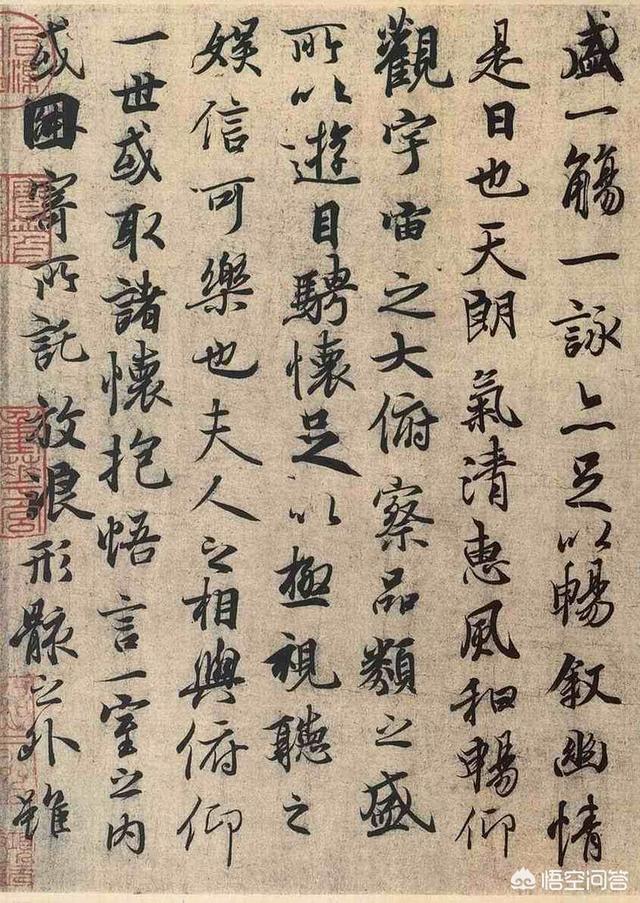 盛一觴一詠亦足以暢叙幽情
是日也天朗氣清惠風和暢仰
觀宇宙之大俯察品類之盛
所以遊目騁懷足以極視聽之
娛信可樂也夫人之相與俯仰
一世或取諸懷抱悟言一室之内
或因寄所託放浪形骸之外雖
悟空问答